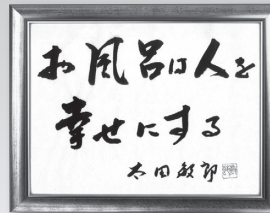 お風呂は人を
幸せにする
太田敏郎